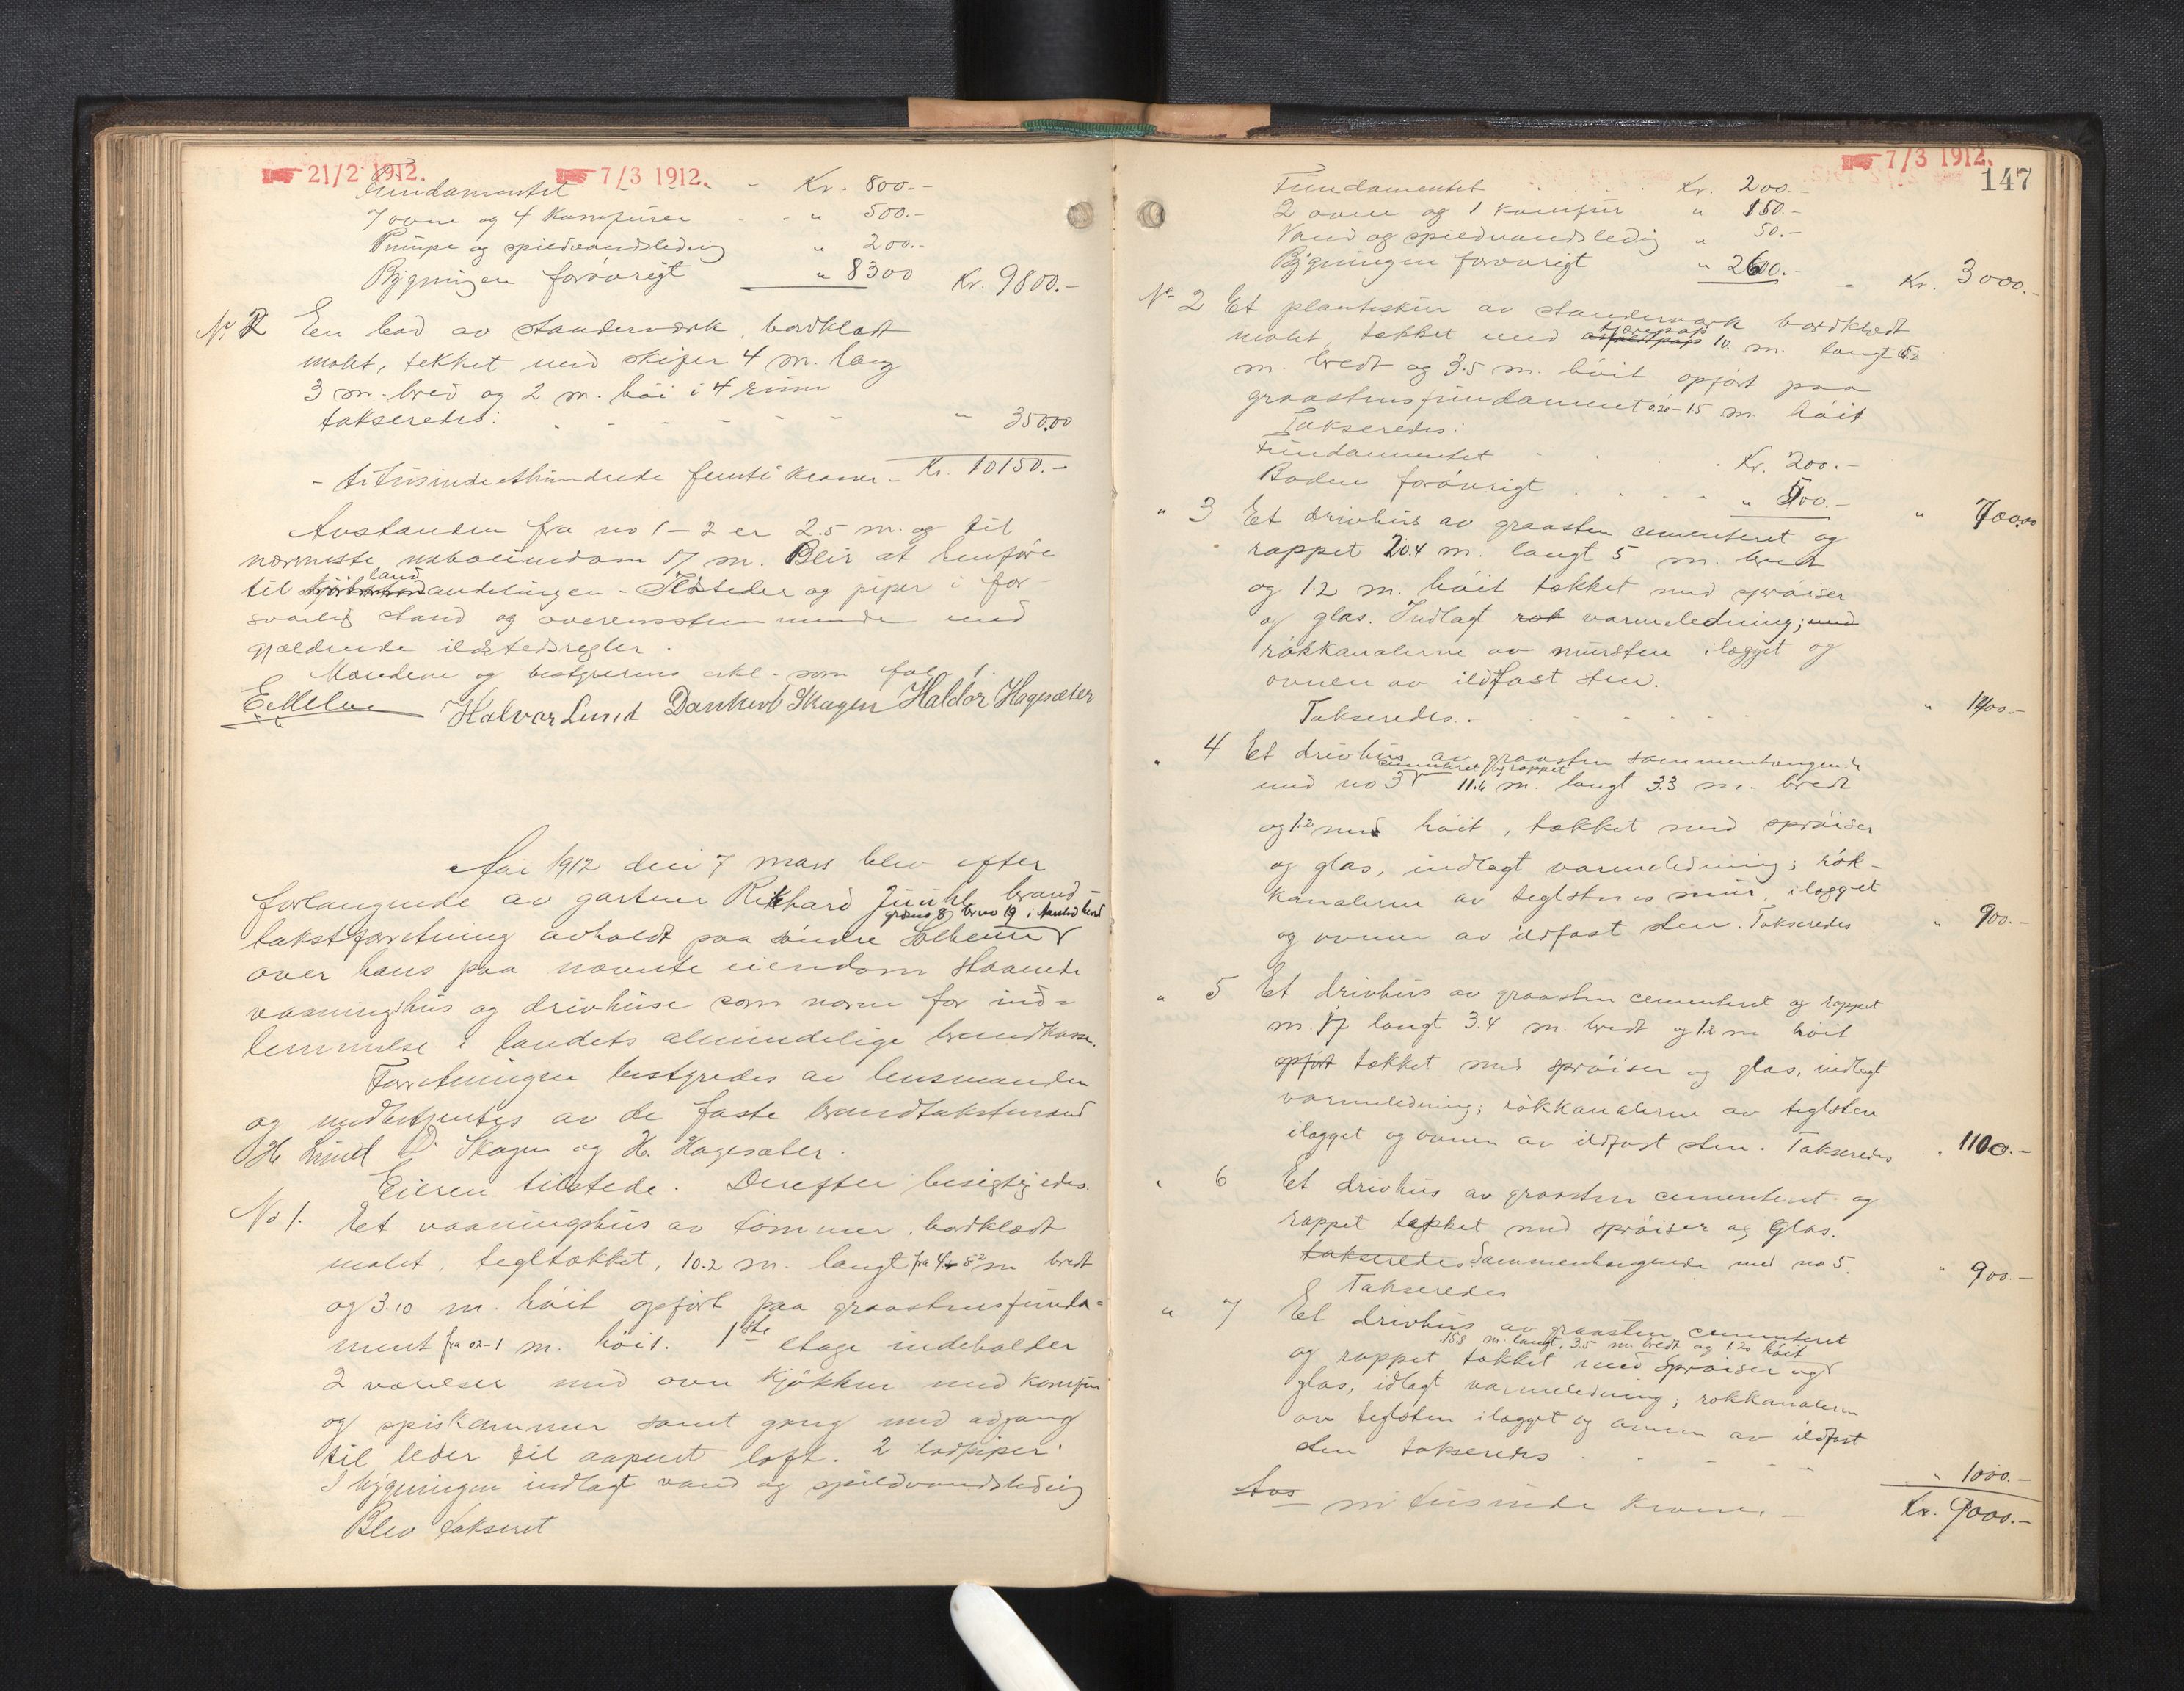 21/2 1912. 7/3 1912.
Fundamentet Kr. 800.-
7 ovne og 4 komfurer " 500.-
Pumpe og spildvandsledning " 200.-
Bygningen forøvrigt " 8300 Kr. 9800.-
No 2 En bod av standerværk, bordklædt
malet, tækket med skifer 4 m. lang
3 m. bred og 2 m. høi i 4 rum
takseredes: " 350.00
- titusindeethundrede femti kroner - Kr. 10150.-
Avstanden fra no 1-2 er 2.5 m. og til
nærmeste naboeiendom 17 m. Blir at henføre
til land
avdelingen - Ildsteder og piper i for-
svarlig stand og overensstemmende med
gjældende ildstedsregler.
Mændene og bestyrerens erkl. som fol. 1.
Halvor Lund Dankert Skagen Haldor Hagesæter
Aar 1912 den 7 mars blev efter
forlangende av gartner Rikhard Juuhl brand-
takstforretning avholdt paa søndre Solheim grno 8 brno 19 i Aarstad herred
over hans paa nævnte eiendom staaende
vaaningshus og drivhuse som norm for ind-
lemmelse i landets almindelige brandkasse.
Forretningen bestyredes av lensmanden
og medbetjentes av de faste brandtakstmænd
H Lund D. Skagen og H. Hagesæter.
Eieren tilstede. Derefter besigtigedes.
No 1. Et vaaningshus av tømmer, bordklædt
malet, tegltækket, 10.2 m. langt fra 4 - 8.2 m bredt
og 3.10 m. høit opført paa graastensfunda-
ment fra 0.2-1 m. høit. 1ste etage indeholder
2 værelser med ovn kjøkken med komfur
og spiskammer samt gang med adgang
til leder til aapent loft. 2 lodpiper.
I bygningen indlagt vand og spildvandsledning
Blev takseret
7/3 1912.
147
Fundamentet Kr. 200.-
2 ovne og 1 komfur " 150.-
Vand og spildvandsledig " 50.-
Bygningen forøvrigt " 2600.- Kr. 3000.-
No 2 Et planteskur av standerværk bordklædt
malet, tækket med asfaltpap tjærepap 10. m. langt 5.2
m. bredt og 3.5 m. høit opført paa
graastensfundament 0.20-15 m. høit
Takseredes:
Fundamentet Kr. 200.-
Boden forøvrigt " 500.- " 700.00
" 3 Et drivhus av graasten cementeret og
rappet 20.4 m. langt 5 m. bredt
og 1.2 m. høit tækket med sprøiser
og glas. Indlagt røk varmeledning; med
røkkanalerne av mursten ilagget og
ovnen av ildfast sten.
Takseredes. " 1400.-
" 4 Et drivhus av graasten sammenhengende
med no 3 cementeret og rappet 11.6 m. langt 3.3 m. bredt
og 1.2 med høit, tækket med sprøiser
og glas, indlagt varmeledning; røk-
kanalerne av teglstens mur, ilagget
og ovnen av ildfast sten. Takseredes " 900.-
" 5 Et drivhus av graasten cementeret og rappet
m. 17 langt 3.4 m. bredt og 1.2 m høit
opført tækket med sprøiser og glas, indlagt
varmeledning; røkkanalerne av teglsten
ilagget og ovnen av ildfast sten. Takseredes " 1100.-
" 6 Et drivhus av graasten cementeret og
rappet tækket med sprøiser og glas.
takseredes Sammenhengende med no 5.
Takseredes " 900.-
" 7 Et drivhus av graasten cementeret
15.8 m. langt, 3.5 m. bredt og 1.20 høit
og rappet tækket med sprøiser og
glas, idlagt varmeledning; røkkanalerne
av teglsten ilagget og ovnen av ildfast
sten takseredes " 1000.-
Avs ni tusinde kroner. - Kr. 9000.-